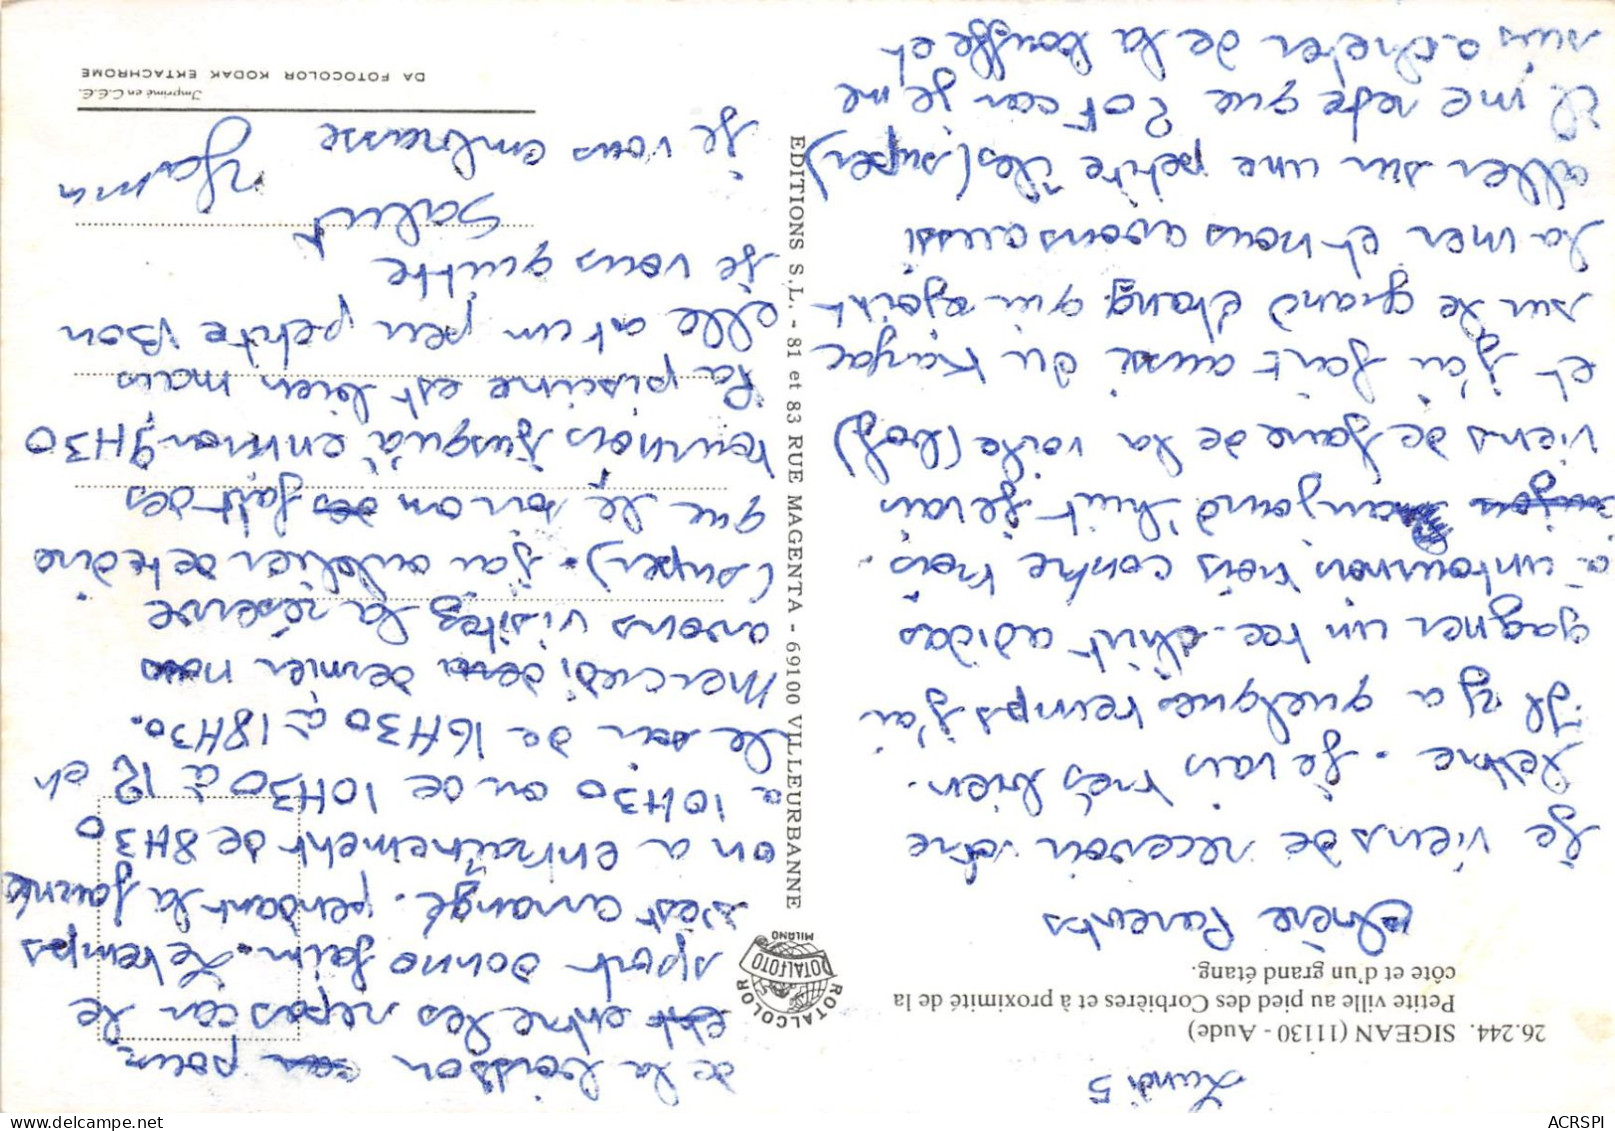 Lundi 5
26.244. SIGEAN (11130 - Aude)
Petite ville au pied des Corbières et à proximité de la
côte et d'un grand étang.
Chère Parents
Je viens de recevoir votre
lettre. Je vais très bien.
Il y a quelques temps j'ai
gagner un tee-shirt adidas
a un tournois trois contre trois.
aujourd'huit je vais
viens de faire de la voile (bof)
et j'ai fait aussi du kayac
sur le grand étang qui rejoint
la mer et nous avons aussi
aller sur une petite îles (super)
Il me reste que 20F car je me
suis acheter de la bouffe et
de la boisson pour
entre les repas car le
sport donne faim. Le temps
s'est arrangé. pendant la journé
on a entraînement de 8H30
a 10H30 ou de 10H30 à 12 et
le soir de 16H30 à 18H30.
Mercredi dernier nous
avons visitez la réserve
(super). j'au oublier de te dire
que le soir on fait des
tournois jusqu'à environ 9H30
La piscine est bien mais
elle est un peu petite Bon
je vous quitte
Salut
je vous embrasse
Yann
ROTALCOLOR
ROTALFOTO
MILANO
EDITIONS S.L. - 81 et 83 RUE MAGENTA - 69100 VILLEURBANNE
Imprimé en C.E.E.
DA FOTOCOLOR KODAK EKTACHROME
ACRSPI